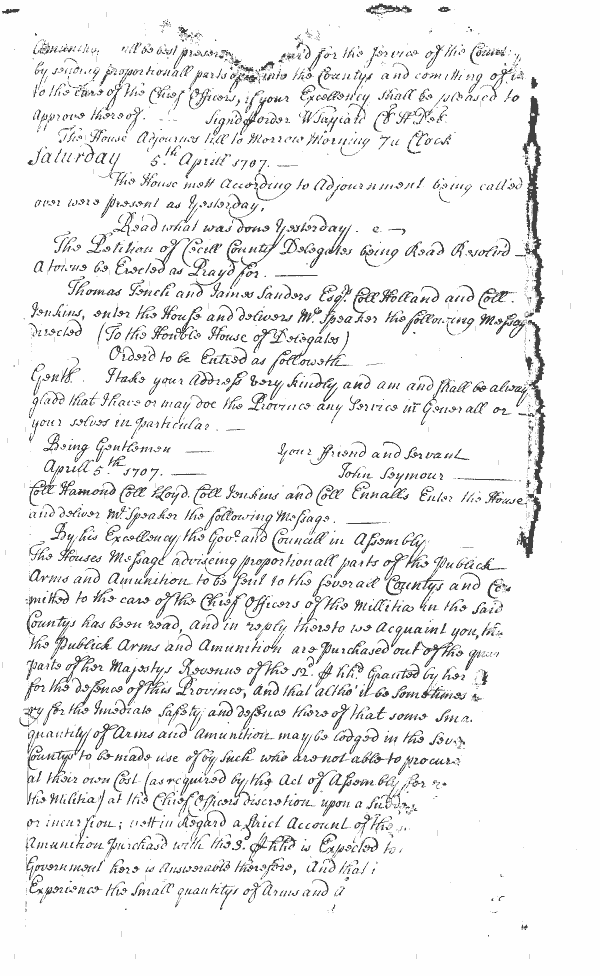 will be best for the Service of the
by sending proportionall parts of into the Countys and comitting of
to the Care of the Chief Officers, if your Excellency shall be pleased to
Approve thereof. Signd order W Tayiard Cl H Del.
The House Adjournes till to Morrow Morning 7n Clock
Saturday 5.th Aprill 1707.
The House mett According to Adjournment being called
over were present as Yesterday,
Read what was done Yesterday.
The Petition of Cecill County Delegates being Read Resolvd
A towne be Erected as Prayd for.
Thomas Tench and James Sanders Esqr. Coll Holland and Coll
Jenkins, enter the House and delivers Mr. Speaker the following Messag
Directed (To the Honble House of Delegates)
Orderd to be Entred as followeth
Gentl. I take your Address very kindly and am and shall be alway
gladd that I have or may doe the Province any Service in Generall or
your selves in particular.
Being Gentlemen your ffriend and Servant
Aprill 5.th 1707. John Seymour
Coll Hamond Coll Lloyd. Coll Jenkins and Coll Ennalls Enter the House
and deliver Mr. Speaker the following Message.
By his Excellency the Govr. and Councill in Assembly
The Houses Message adviseing proportionall parts of the Publick
Arms and Amunition to be sent to the severall Countys and Co
mitted to the care of the Chief Officers of the Millitia in the said
Countys has been read, and in reply thereto we Acquaint you, th
the Publick Arms and Amunition are Purchased out of the
parte of her Majestys Revenue of the hhd. Granted by her
for the defence of this Province, And that altho' it be sometimes
ry for the Imediate Safety and defence there of that some Sma
quantity of Arms and Amunition may be lodged in the Seve
Countys to be made use of by such who are not able to procure
at their own Cost (as required by the Act of Assembly for
the Militia) at the Chief Officers discretion upon a Sudd
or incursion; yett in Regard a Strict Account of the
Amunition Purchasd with the hhd is Expected
Government here is Answerable therefore, And that
Experience the Small quantitys of Arms and A